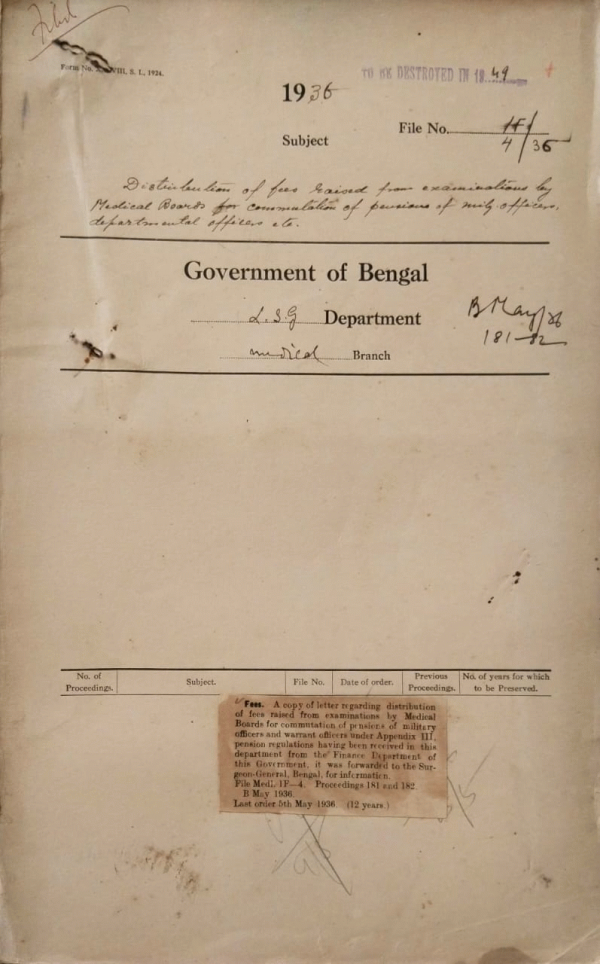 Filed
Form No. VIII, S. I., 1924.
TO BE DESTROYED IN 1949
1936
File No. 1F/
4/36
Subject
Distribution of fees raised from examinations by
Medical Boards for commutation of pensions of mily. officers,
departmental officers etc.
Government of Bengal
L.S.G Department
medical Branch
B May/36
181-82
No. of Proceedings. Subject. File No. Date of order. Previous Proceedings. No. of years for which to be Preserved.
Fees. A copy of letter regarding distribution
of fees raised from examinations by Medical
Boards for commutation of pensions of military
officers and warrant officers under Appendix III,
pension regulations having been received in this
department from the Finance Department of
this Government, it was forwarded to the Sur-
geon-General, Bengal, for information.
File Medl. 1F—4. Proceedings 181 and 182.
B May 1936.
Last order 5th May 1936. (12 years.)